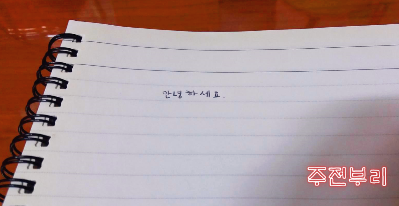 안녕하세요.
주전부리